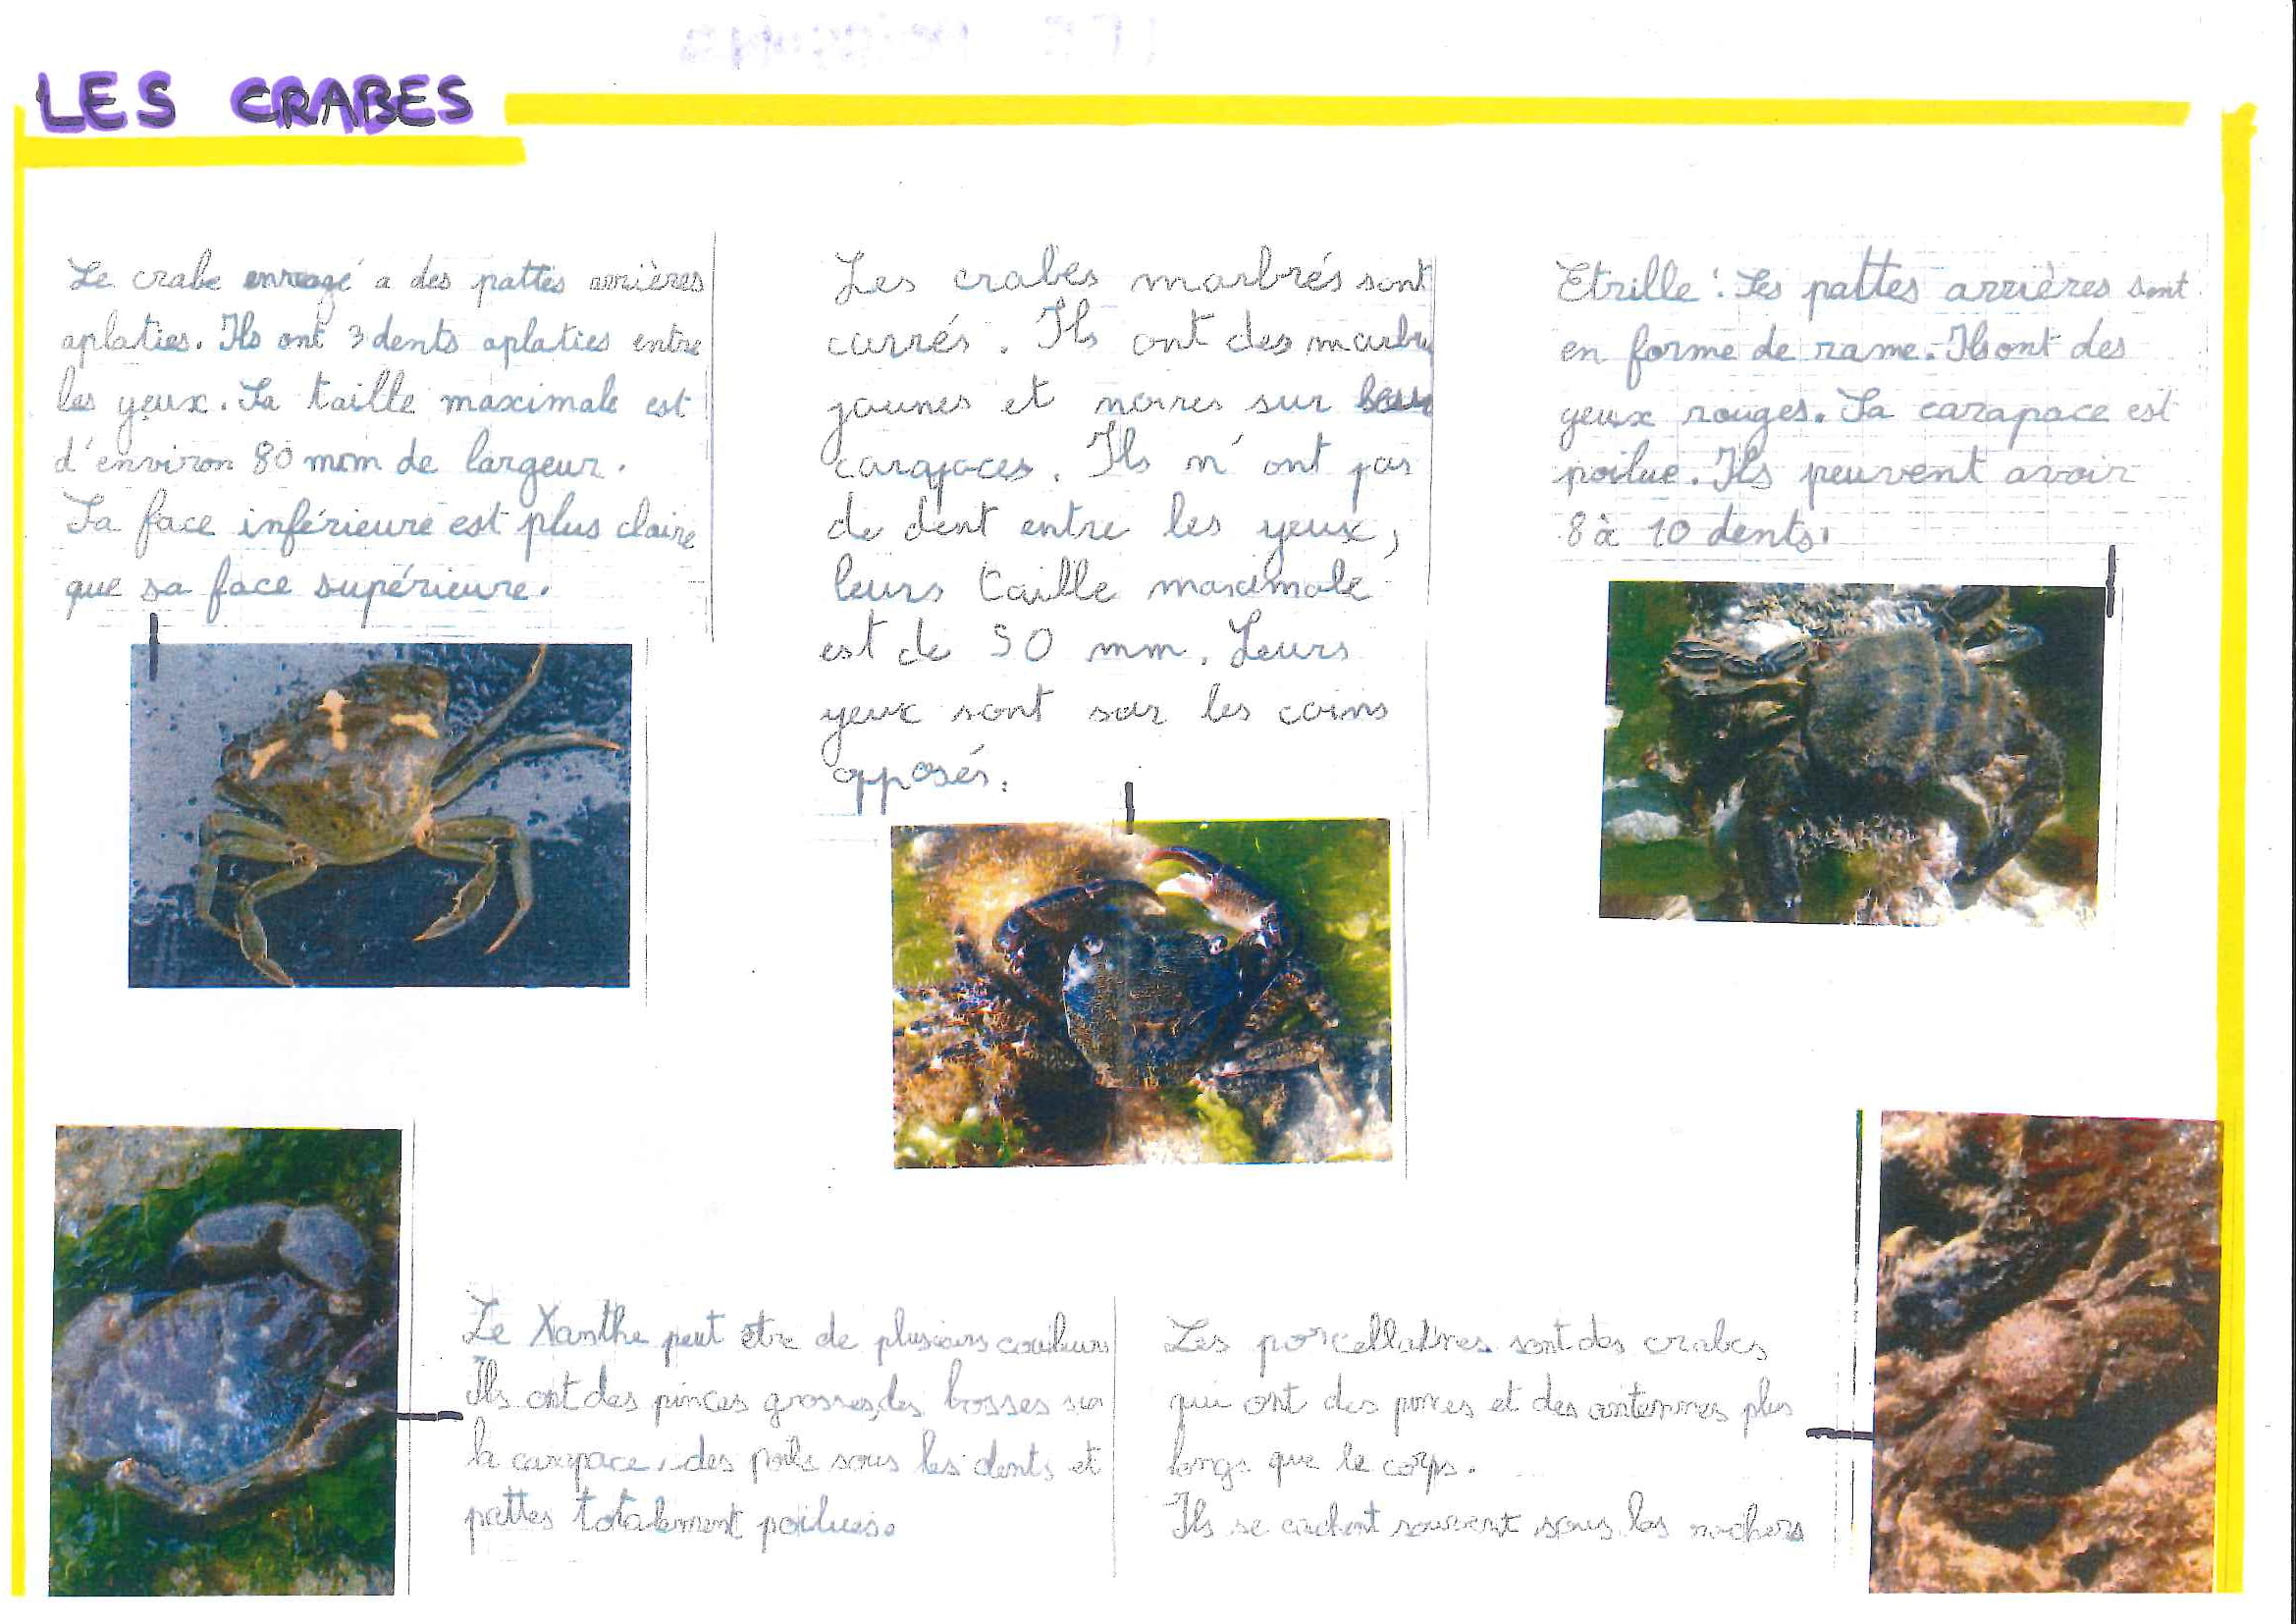 LES CRABES
Le crabe enragé a des pattes arrières
aplaties. Ils ont 3 dents aplaties entre
les yeux. La taille maximale est
d'environ 80 mm de largeur.
La face inférieure est plus claire
que sa face supérieure.
Les crabes marbrés sont
carrés. Ils ont des marbru
jaunes et noires sur leur
carapaces. Ils n'ont pas
de dent entre les yeux,
leurs taille maximale
est de 50 mm. Leurs
yeux sont sur les coins
opposés.
Etrille : Les pattes arrières sont
en forme de rame. Ils ont des
yeux rouges. La carapace est
poilue. Ils peuvent avoir
8 à 10 dents.
Le Xanthe peut être de plusieurs couleurs
Ils ont des pinces grosses, des bosses sur
la carapace, des poils sous les dents et
pattes totalement poilues.
Les porcellaines sont des crabes
qui ont des pinces et des antennes plus
longs que le corps.
Ils se cachent souvent sous les rochers